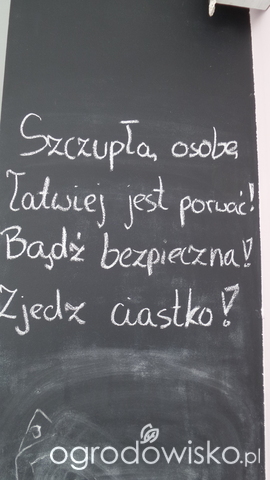 Szczupłą osobę
łatwiej jest porwać!
Bądź bezpieczna!
Zjedz ciastko!
ogrodowisko.pl